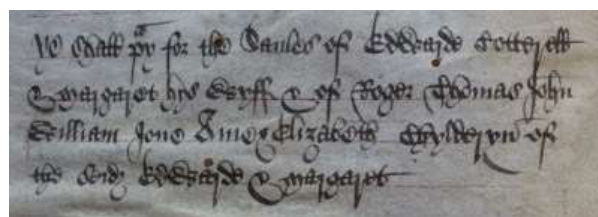 Ye shall pray for the Saules of Edwarde Cotterell
& Margaret hys wyff & of Roger Thomas John
William Jone Amez Elizabeth Chylderyn of
the seid Edwarde & Margaret